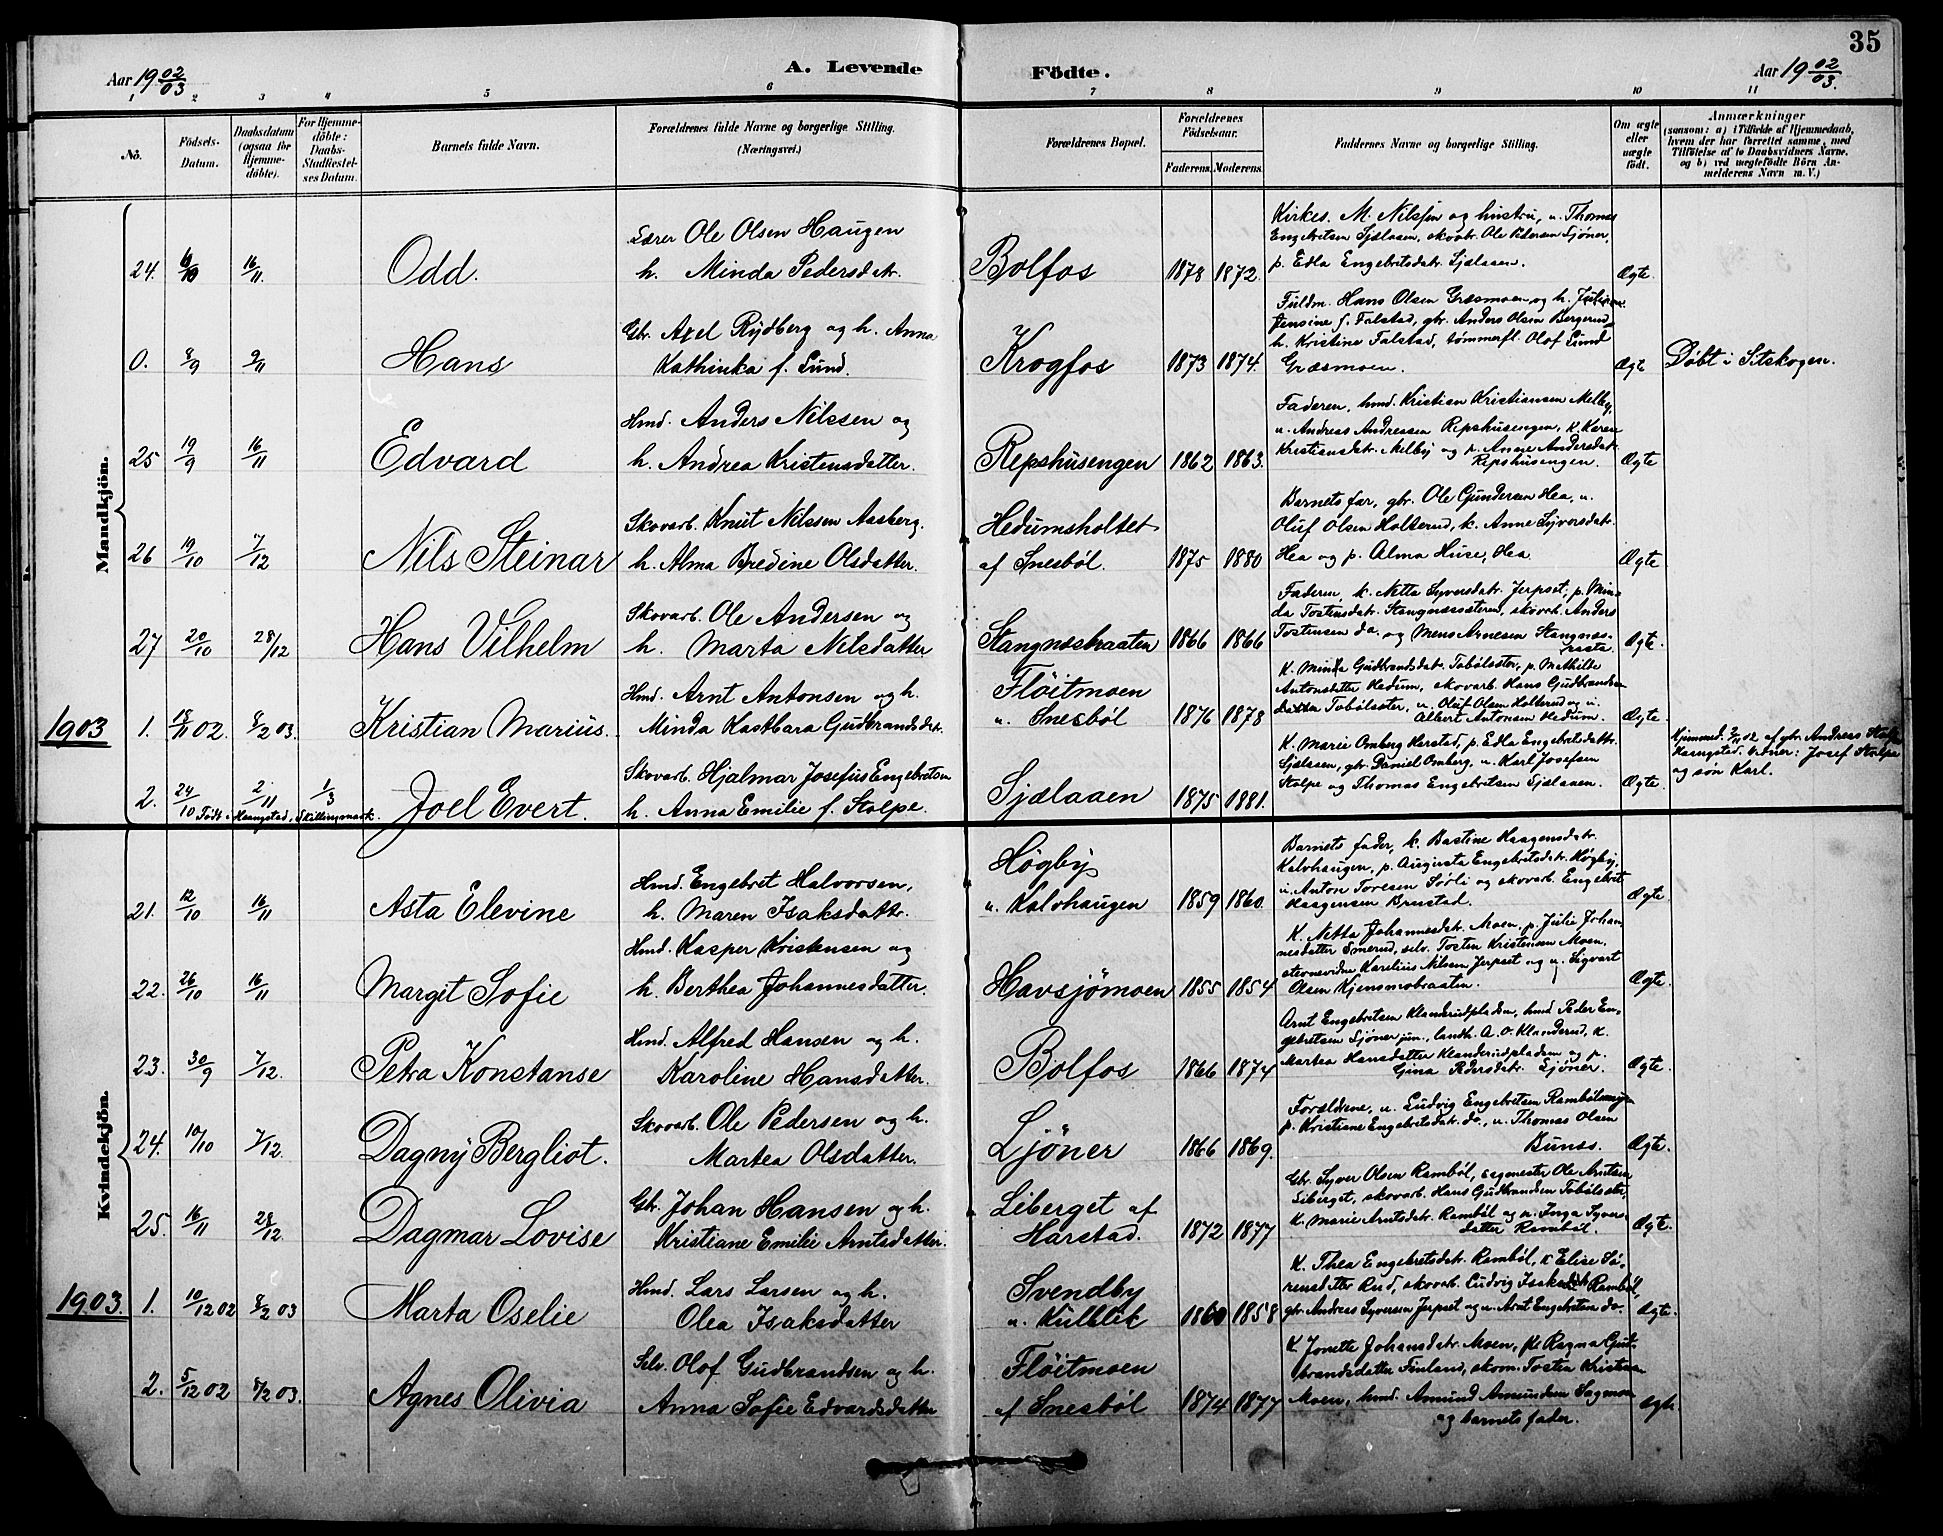 35
Aar 19 02/03
A. Levende Födte.
Aar 19 02/03.
1 2 3 4 5 6 7 8 9 10 11
Nö.
Födsels-Datum.
Daabsdatum (ogsaa for Hjemme-döbte).
For Hjemme-döbte: Daabs-Stadfæstel-ses Datum.
Barnets fulde Navn.
Forældrenes fulde Navne og borgerlige Stilling.
(Næringsvei.)
Forældrenes Bopæl.
Forældrenes Födselsaar.
Faderens. Moderens.
Faddernes Navne og borgerlige Stilling.
Om ægte eller uægte födt.
Anmærkninger
(saasom: a) i Tilfælde af Hjemmedaab,
hvem der har forrettet samme, med
Tilföielse af to Daabsvidners Navne,
og b) ved uægtefödte Börn An-
melderens Navn m. V.)
Mandkjön.
24. 16/11 Odd.
Lærer Ole Olsen Haugen
h. Minda Pedersdatr.
Bolfos 1878 1872.
Kirkes. M. Nilssen og hustru, u. Thomas
Engebretsen Sjælaaen, skovbr. Ole Pedersen Ljöner,
p. Edla Engebretsdatr. Sjælaaen.
Ægte.
0. 8/9 9/11 Hans
Gbr. Axel Rydberg og h. Anna
Kathinka f. Lund.
Krogfos 1873 1874.
Fuldm. Hans Olsen Græsmoen og h.
Jensine f. Falstad, gbr. Anders Olsen Bergerud
h. Kristine Falstad, tømmerfl. Olof Lund
Græsmoen.
Ægte
Døbt i Sitskogen.
25 19/9 16/11 Edvard
Hmd. Anders Nilssen og
h. Andrea Kristensdatter.
Repshusengen 1862 1863.
Faderen, hmd. Kristian Kristiansen Melby,
u. Andreas Andreassen Repshusengen, k. Karen
Kristiansdatr. Melby og p. Anne Andersdatr.
Repshusengen.
Ægte
26 19/10 7/12 Nils Steinar
Skovarb. Knut Nilssen Aasberg.
h. Alma Bredine Olsdatter.
Hedumsholtet
af Snesböl. 1875 1880
Barnets far, gbr. Ole Gundersen Hea, u.
Oluf Olsen Holterud, k. Anne Syversdatr.
Hea og p. Alma Huse, Hea
Ægte
27 20/10 28/12 Hans Vilhelm
Skovarb. Ole Andersen og
h. Marta Nilsdatter
Stangnæsbraaten 1866 1866
Faderen, k. Netta Syversdatr. Jerpset, p. Min-
da Tostensdatr. Stangnæssæteren, skovarb. Anders
Tostensen do. og Mens Arnesen Stangnæs-
Ægte.
1903 1. 18/11 02. 8/2 03. Kristian Marius.
Hmd. Arnt Antonsen og h.
Minda Kastbara Gudbrandsdatr.
Flöitmoen
u. Snesböl 1876 1878
K. Minda Gudbrandsdatr. Toböl­sæter, p. Mathilde
Antonsdatter Hedum, skovarb. Hans Gudbrandsen
Tobölsæter, u. Oluf Olsen Holterud og u.
Albert Antonsen Hedum.
Ægte.
2. 24/10 2/11 1/3 Joel Evert.
Födt i Haangstad, Skillingmark.
Skovarb. Hjalmar Josefus Engebretsen
h. Anna Emilie f. Stolpe.
Sjælaaen 1875 1881.
K. Marie Omberg Harstad, p. Edla Engebretsdatr.
Sjælaaen, gbr. Daniel Omberg, u. Karl Josefsen
Stolpe og Thomas Engebretsen Sjælaaen.
Ægte.
Hjemmed. 2/11 02 af gbr. Andreas Stolpe
Haangstad. Vidner: Josef Stolpe
og søn Karl.
Kvindekjön.
21. 12/10 16/11 Asta Elevine
Hmd. Engebret Halvorsen,
h. Maren Isaksdatter.
Högby
u. Kalvhaugen 1859 1860.
Barnets fader, k. Bastine Haagensdatr.
Kalvhaugen, p. Augusta Engebretsdatr. Högby,
u. Anton Toresen Sörli og skovarb. Engebret
Haagensen Brustad.
Ægte.
22. 26/10 16/11 Margit Sofie
Hmd. Kasper Kristensen og
h. Berthea Johannesdatter.
Havsjömoen 1855 1854
K. Netta Johannesdatr. Moen, p. Julie Johan-
nesdatter Smerud, selv. Tosten Kristensen Moen,
stevnevidne Karelius Nilsen Jerpset og u. Sigvart
Olsen Kjensmobraaten.
Ægte.
23. 30/9 7/12. Petra Konstanse
Hmd. Alfred Hansen og h.
Karoline Hansdatter.
Bolfos 1866 1874
Arnt Engebretsen Klanderudpladsen, hmd. Peder En-
gebretsen Ljöner jun., landh. A. O. Klanderud, k.
Martea Hansdatter Klanderudpladsen og p.
Gina Pedersdatr. Ljöner.
Ægte.
24. 10/10 7/12. Dagny Bergliot.
Skovarb. Ole Pedersen og h.
Martea Olsdatter.
Ljöner 1866 1869.
Forældrene, u. Ludvig Engebretsen
p. Kristiane Engebretsdatr. do., u. Thomas Olsen
Bunes.
Ægte.
25. 16/11 28/12. Dagmar Lovise
Gbr. Johan Hansen og h.
Kristiane Emilie Arntsdatter.
Liberget af
Harstad. 1872 1877
Gbr. Syver Olsen Ramböl, sagmester Ole Arntsen
Liberget, skovarb. Hans Gudbrandsen Tobölsæter,
K. Marie Arntsdatr. Ramböl og p. Inga Syvers-
datter Ramböl.
Ægte.
1903. 1. 10/12 02 8/2 03 Marta Oselie
Hmd. Lars Larsen og h.
Olea Isaksdatter
Svendby
u. Kulblik 1860 1858
K. Thea Engebretsdatr. Ramböl, k Elise Sö-
rensdatter Rud, skovarb. Ludvig Isaksen Ramböl,
gbr Andreas Syversen Jerpset og u. Arnt Engebretsen do.
Ægte.
2. 5/12 02 8/2 03. Agnes Olivia
Selv. Olof Gudbrandsen og h.
Anna Sofie Edvardsdatter
Flöitmoen
af Snesböl 1874 1877
K Jonette Johansdatr. Moen, Ragna Gud-
brandsdatter Finland, skom. Tosten Kristian
Moen, hmd. Amund Amundsen Sagmoen
og barnets fader.
Ægte.